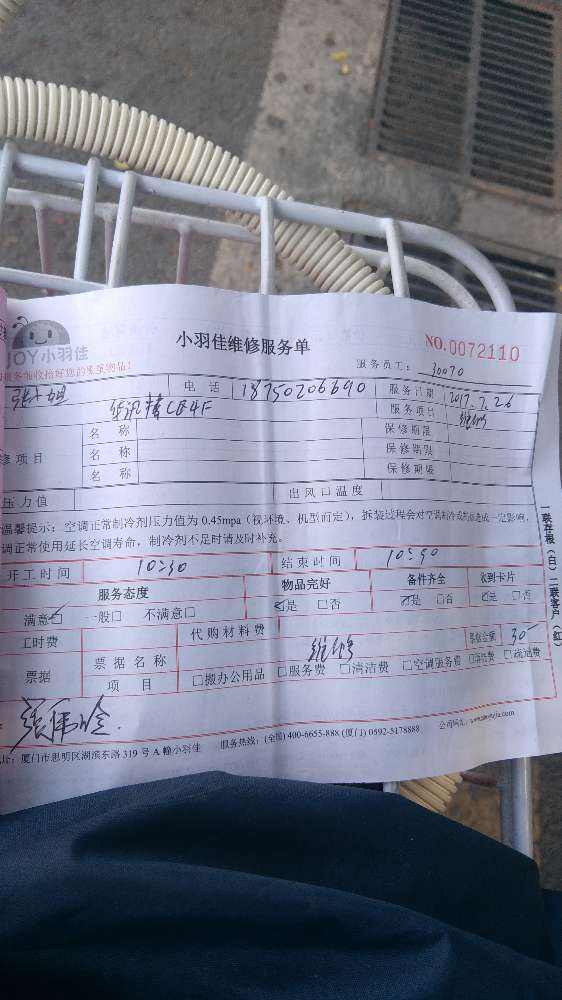 JOY小羽佳
小羽佳维修服务单
NO.0072110
服务员工： 30070
张小姐 电话 18750206690 服务日期 2017.7.26
CB4F 服务项目 维修
名称 保修期限
修项目 名称 保修期限
名称 保修期限
压力值 出风口温度
温馨提示：空调正常制冷剂压力值为 0.45mpa（视环境、机型而定），拆装过程会对空调制冷或制热造成一定影响，
调正常使用延长空调寿命，制冷剂不足时请及时补充。
开工时间 10:30 结束时间 10:40
服务态度 物品完好 备件齐全 收到卡片
满意☑ 一般□ 不满意□ ☑是 □否 ☑是 □否 ☑是 □否
工时费 代购材料费 30-
票据 票据名称 维修
项目 □搬办公用品 □服务费 □清洁费 □空调服务费 □疏通费
址：厦门市思明区湖滨东路 319 号 A 幢小羽佳 服务热线：(全国) 400-6655-888 (厦门) 0592-3178888 公司网址：
一联存根（白）二联客户（红）